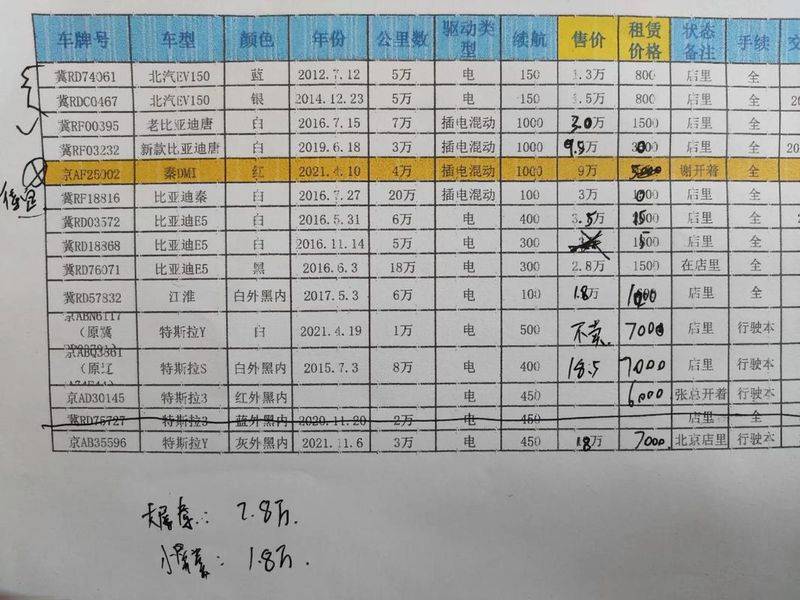 车牌号 车型 颜色 年份 公里数 驱动类型 续航 售价 租赁价格 状态备注 手续 交
冀RD74061 北汽EV150 蓝 2012.7.12 5万 电 150 1.3万 800 店里 全
冀RDC0467 北汽EV150 银 2014.12.23 5万 电 150 1.5万 800 店里 全 20
冀RF00395 老比亚迪唐 白 2016.7.15 7万 插电混动 1000 3.0万 1500 店里 全
冀RF03232 新款比亚迪唐 白 2019.6.18 3万 插电混动 1000 9.5万 店里 全 20
京AF25002 秦DMI 红 2021.4.10 4万 插电混动 1000 9万 5000 谢开着 全
冀RF18816 比亚迪秦 白 2016.7.27 20万 插电混动 100 3万 店里 全
冀RD03572 比亚迪E5 白 2016.5.31 6万 电 400 3.5万 店里 全
冀RD18368 比亚迪E5 白 2016.11.14 5万 电 300 店里 全
冀RD76071 比亚迪E5 黑 2016.6.3 18万 电 300 2.8万 1500 在店里 全
冀RD57832 江淮 白外黑内 2017.5.3 6万 电 100 1.8万 1000 店里 全
京ABN6117（原冀 特斯拉Y 白 2021.4.19 1万 电 500 不卖 7000 店里 行驶本
京ABQ3361（原辽 特斯拉S 白外黑内 2015.7.3 8万 电 400 18.5 7000 店里 行驶本
京AD30145 特斯拉3 红外黑内 电 450 6000 张总开着 行驶本
冀RD75727 特斯拉3 蓝外黑内 2020.11.20 2万 电 450 店里 全
京AB35596 特斯拉Y 灰外黑内 2021.11.6 3万 电 450 18万 7000 北京店里 行驶本
大屏秦: 2.8万.
小屏秦: 1.8万.